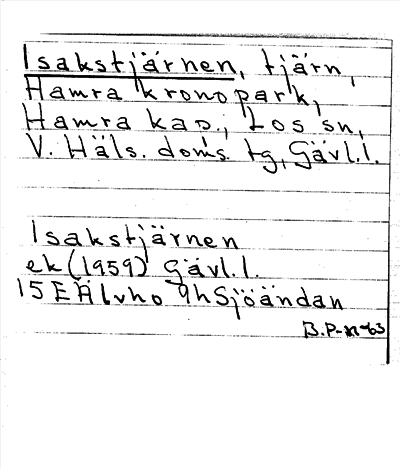 Isakstjärnen, tjärn,
Hamra kronopark,
Hamra kap., Los sn,
V. Häls. doms. tg, Gävl.l.
Isakstjärnen
ek (1959) Gävl.l.
15E Älvho 9h Sjöändan
B.P-n -63